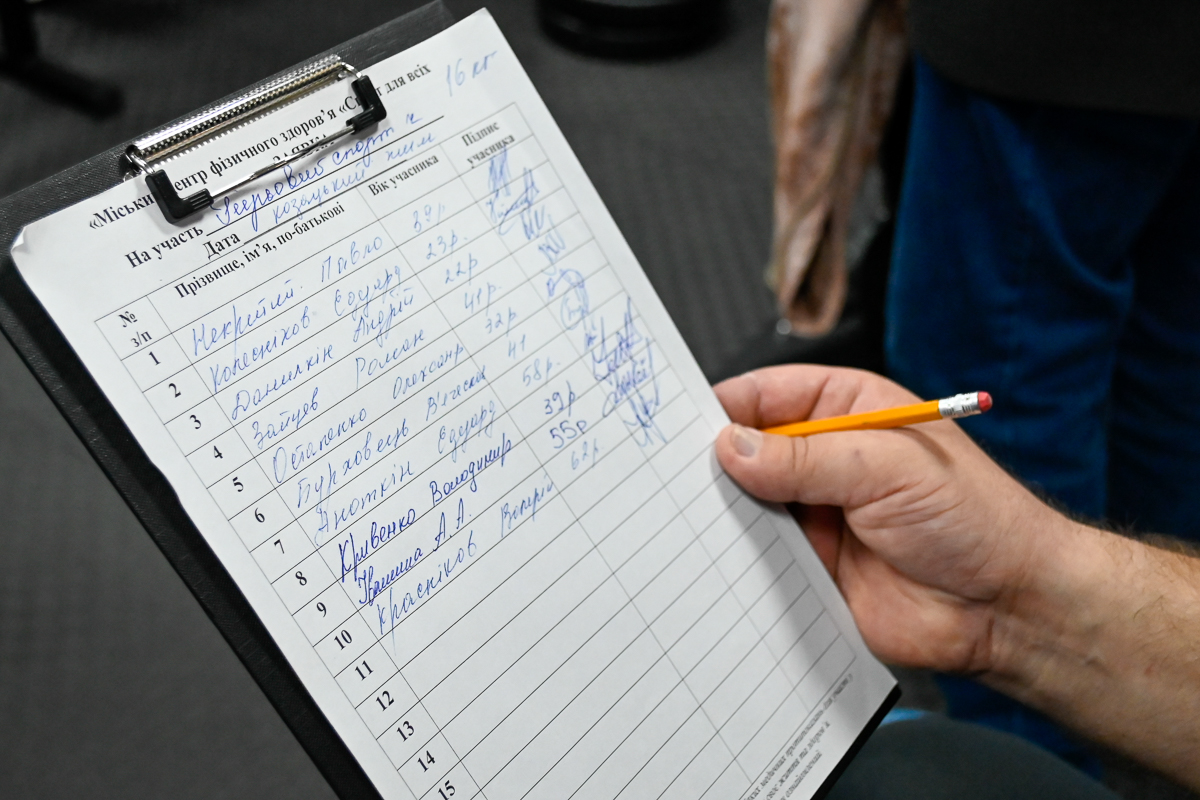 16 кг
«Міський центр фізичного здоров'я «Спорт для всіх
ЗАЯВКА
На участь Гирьовий спорт
Дата козацький жим
№ з/п Прізвище, ім'я, по-батькові Вік учасника Підпис учасника
1 Некритий Павло 39р.
2 Колесніков Едуард 23р.
3 Данилкін Андрій 22р.
4 Зайцев Роман 41р.
5 Остапенко Олександр 32р.
6 Бурховець В'ячеслав 41
7 Анюткін Едуард 58р.
8 Кривенко Володимир 39р
9 Іванина А.А. 55р
10 Красніков Валерій 62р
11
12
13
14
15